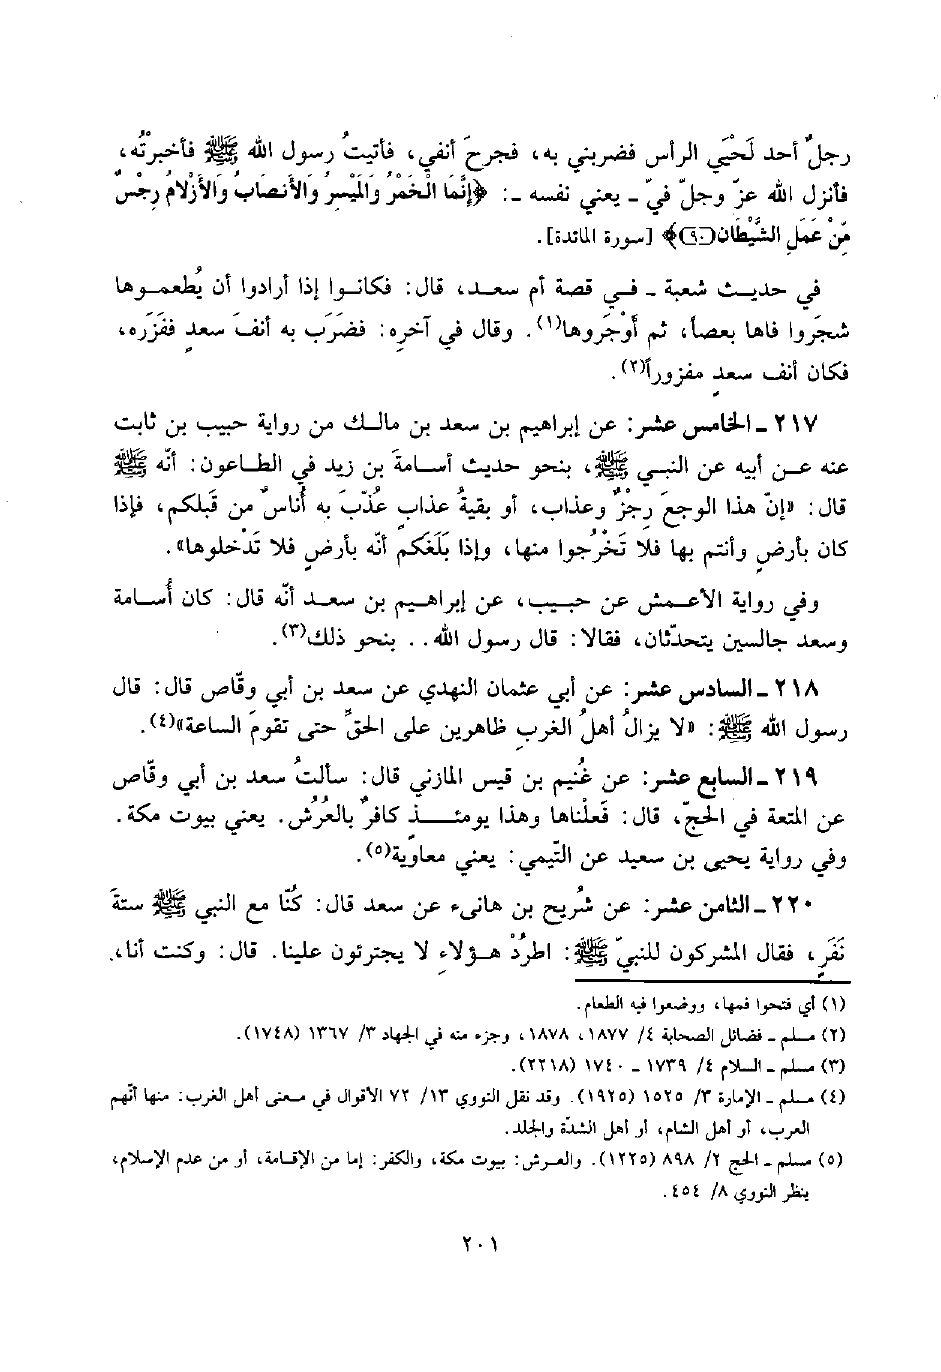 رجلٌ أحد لَحْيَي الرأس فضربني به، فجرحَ أنفي، فأتيتُ رسول الله ﷺ فأخبرْتُه،
فأنزل الله عزّ وجلّ فيّ ـ يعني نفسه ـ: ﴿إنَّمَا الْخَمْرُ وَالمَيْسِرُ وَالأَنصَابُ وَالأَزْلامُ رِجْسٌ
مِّنْ عَمَلِ الشَّيْطَانِ (٩٠)﴾ [سورة المائدة].
في حديث شعبة ـ في قصة أم سعد، قال: فكانوا إذا أرادوا أن يُطعموها
شجَروا فاها بعصاً، ثم أوْجَروها(١). وقال في آخرِه: فضَرَبَ به أنفَ سعدٍ ففَزَره،
فكان أنف سعدٍ مفزوراً(٢).
٢١٧ ـ الخامس عشر: عن إبراهيم بن سعد بن مالك من رواية حبيب بن ثابت
عنه عن أبيه عن النبي ﷺ، بنحو حديث أسامةَ بن زيد في الطاعون: أنّه ﷺ
قال: «إنّ هذا الوجعَ رِجْزٌ وعذاب، أو بقيةُ عذابٍ عُذّبَ به أُناسٌ من قَبلكم، فإذا
كان بأرضٍ وأنتم بها فلا تَخْرُجوا منها، وإذا بَلَغَكم أنّه بأرضٍ فلا تَدْخلوها».
وفي رواية الأعمش عن حبيب، عن إبراهيم بن سعد أنّه قال: كان أُسامة
وسعد جالسين يتحدّثان، فقالا: قال رسول الله.. بنحو ذلك(٣).
٢١٨ ـ السادس عشر: عن أبي عثمان النهدي عن سعد بن أبي وقّاص قال: قال
رسول الله ﷺ: «لا يزالُ أهلُ الغربِ ظاهرين على الحقِّ حتى تقومَ الساعة»(٤).
٢١٩ ـ السابع عشر: عن غُنيم بن قيس المازني قال: سألتُ سعد بن أبي وقّاص
عن المتعة في الحجّ، قال: فَعلْناها وهذا يومئذٍ كافرٌ بالعُرُش. يعني بيوت مكة.
وفي رواية يحيى بن سعيد عن التّيمي: يعني معاوية(٥).
٢٢٠ ـ الثامن عشر: عن شُريح بن هانىء عن سعد قال: كُنّا مع النبي ﷺ ستةَ
نَفَرٍ، فقال المشركون للنبيّ ﷺ: اطرُدْ هؤلاءِ لا يجترئون علينا. قال: وكنت أنا،
(١) أي فتحوا فمها، ووضعوا فيه الطعام.
(٢) مسلم ـ فضائل الصحابة ٤/ ١٨٧٧، ١٨٧٨، وجزء منه في الجهاد ٣/ ١٣٦٧ (١٧٤٨).
(٣) مسلم ـ السلام ٤/ ١٧٣٩ ـ ١٧٤٠ (٢٢١٨).
(٤) مسلم ـ الإمارة ٣/ ١٥٢٥ (١٩٢٥). وقد نقل النووي ١٣/ ٧٢ الأقوال في معنى أهل الغرب: منها أنّهم
العرب، أو أهل الشام، أو أهل الشدّة والجلد.
(٥) مسلم ـ الحج ٢/ ٨٩٨ (١٢٢٥). والعرش: بيوت مكة، والكفر: إما من الإقامة، أو من عدم الإسلام،
ينظر النووي ٨/ ٤٥٤.
٢٠١